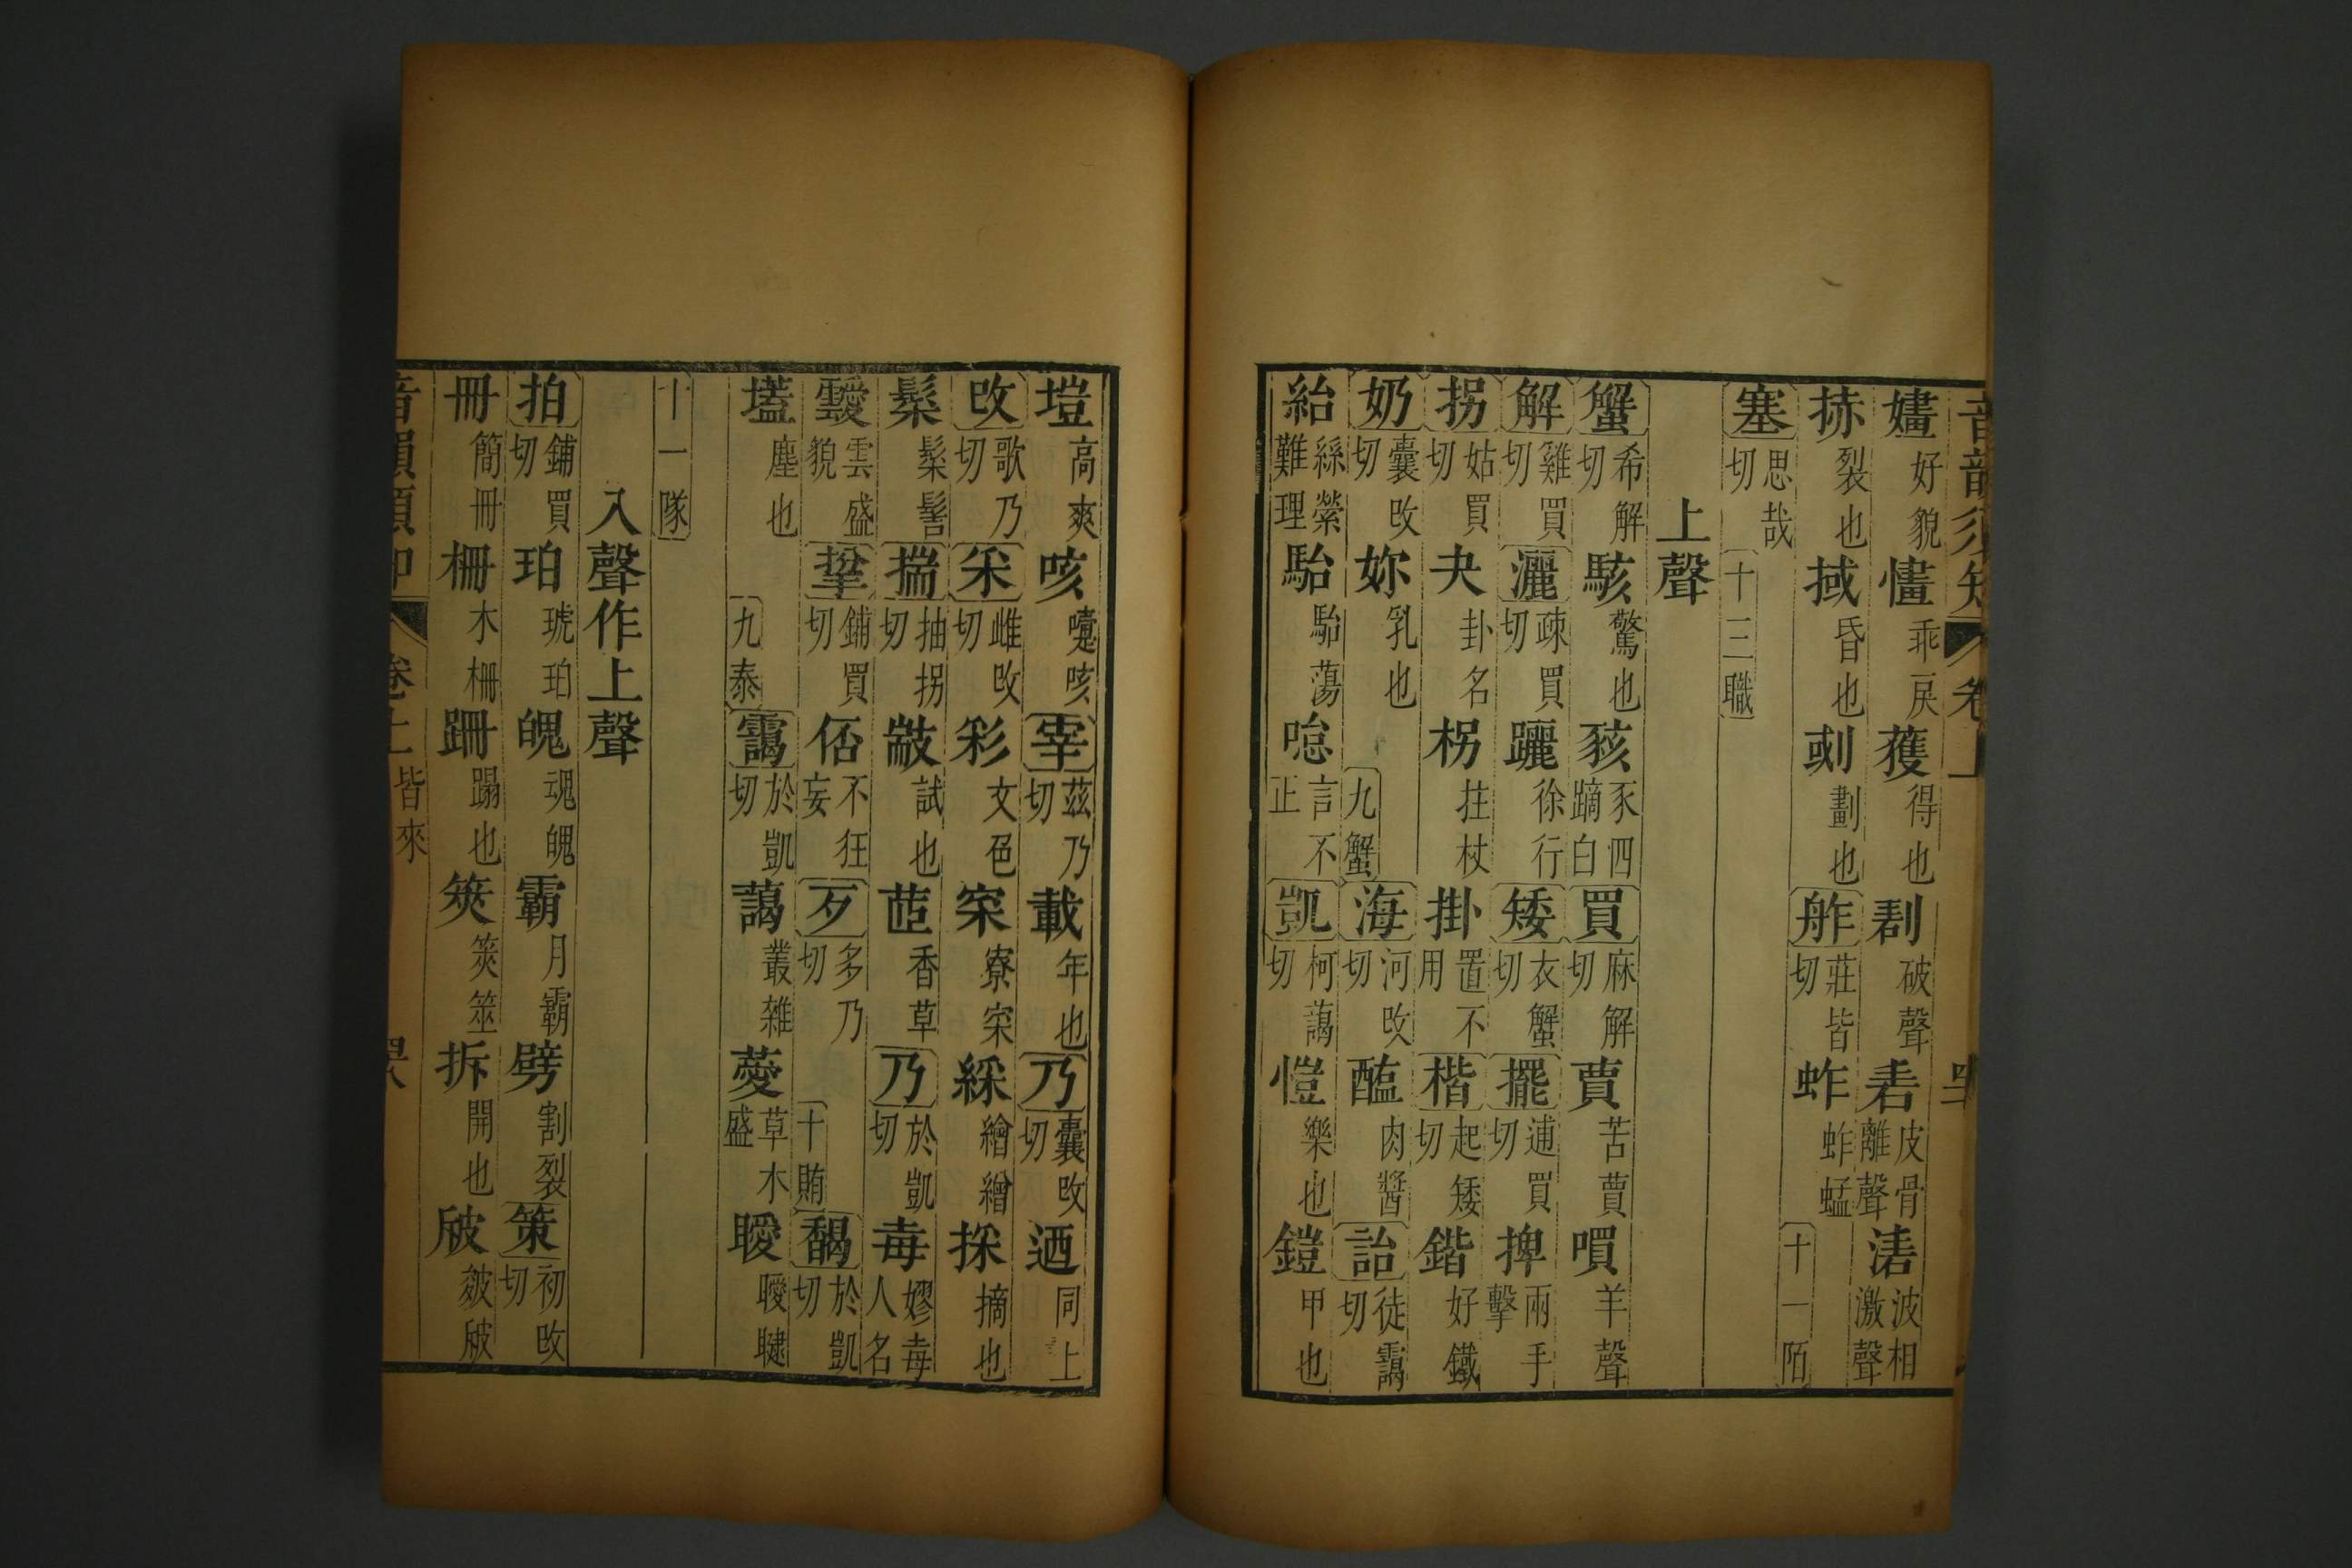 音韻須知 卷上
嫿好貌 㦎乖戾 獲得也 剨破聲 砉皮骨離聲 湱波相激聲
捇裂也 掝昏也 㓰劃也 舴莊皆切 蚱蚱蜢 十一陌
塞思哉切 十三職
上聲
蟹希解切 駭驚也 豥豕四蹢白 買麻解切 蕒苦蕒 嘪羊聲
解雞買切 灑疎買切 躧徐行 矮衣蟹切 擺逋買切 捭兩手擊
拐姑買切 夬卦名 枴拄杖 掛置不用 楷起矮切 鍇好鐵
奶囊改切 妳乳也 九蟹 海河改切 醢肉醬 詒徒靄切
紿絲縈難理 駘駘蕩 唸言不正 凱柯藹切 愷樂也 鎧甲也
塏高爽 咳嚔咳 宰茲乃切 載年也 乃囊改切 迺同上
改歌乃切 采雌改切 彩文色 寀寮寀 綵繒繒 採摘也
髤髤髻 揣抽拐切 敱試也 茝香草 乃於凱切 毐嫪毐人名
靉雲盛貌 㧊鋪買切 俖不狂妄 歹多乃切 十賄 馤於凱切
壒塵也 九泰 靄於凱切 藹叢雜 薆草木盛 聲靉䏈
十一隊
入聲作上聲
拍鋪買切 珀琥珀 魄魂魄 霸月霸 劈割裂 策初改切
冊簡冊 柵木柵 跚蹋也 筴筴筮 拆開也 皵皴皵
音韻須知 卷上 皆來